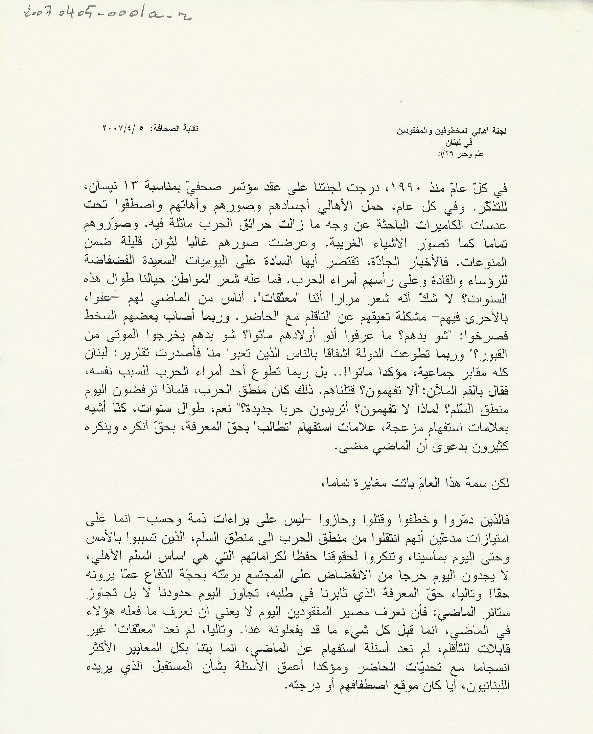 2007 0405-0001a-r
لجنة أهالي المخطوفين والمفقودين
في لبنان
نقابة الصحافة: ٢٠٠٧/٤/٥
في كلّ عام منذ ١٩٩٠، درجت لجنتنا على عقد مؤتمر صحفيّ بمناسبة ١٣ نيسان،
للتذكّر. وفي كل عام، حمل الأهالي أجسادهم وصورهم وآهاتهم واصطفّوا تحت
عدسات الكاميرات الباحثة عن وجه ما زالت حرائق الحرب ماثلة فيه. وصوّروهم
تماما كما تصوّر الأشياء الغريبة. وعرضت صورهم غالبا لثوان قليلة ضمن
المنوعات. فالأخبار الجادّة، تقتصر أيها السادة على اليوميات السعيدة الفضفاضة
للرؤساء والقادة وعلى رأسهم أمراء الحرب. فما عله شعر المواطن حيالنا طوال هذه
السنوات؟ لا شكّ أنه شعر مرارا أننا "معتّقات"، أناس من الماضي لهم -عفوا،
بالأحرى فيهم- مشكلة تعيقهم عن التأقلم مع الحاضر. وربما أصاب بعضهم السخط
فصرخوا: "شو بدهم؟ ما عرفوا أنو أولادهم ماتوا؟ شو بدهم يخرجوا الموتى من
القبور؟" وربما تطوعت الدولة اشفاقا بالناس الذين تعبوا منا فأصدرت تقارير: لبنان
كله مقابر جماعية، مؤكدا ماتوا!.. بل ربما تطوع أحد أمراء الحرب للسبب نفسه،
فقال بالفم الملآن:"ألا تفهمون؟ قتلناهم. ذلك كان منطق الحرب، فلماذا ترفضون اليوم
منطق السّلم؟ لماذا لا تفهمون؟ أتريدون حربا جديدة؟" نعم، طوال سنوات، كنّا أشبه
بعلامات استفهام مزعجة، علامات استفهام "تطالب" بحقّ المعرفة، بحقّ أنكره وينكره
كثيرون بدعوى أن الماضي مضى.
لكن سمة هذا العام باتت مغايرة تماما،
فالذين دمّروا وخطفوا وقتلوا وحازوا -ليس على براءات ذمة وحسب- انما على
امتيازات مدعّين أنهم انتقلوا من منطق الحرب الى منطق السلم، الذين تسببوا بالأمس
وحتى اليوم بمآسينا، وتنكروا لحقوقنا حفظا لكراماتهم التي هي اساس السلم الأهلي،
لا يجدون اليوم حرجا من الانقضاض على المجتمع برمّته بحجّة الدّفاع عمّا يرونه
حقا! وتاليا، حقّ المعرفة الذي ثابرنا في طلبه، تجاوز اليوم حدودنا لا بل تجاوز
ستائر الماضي: فأن نعرف مصير المفقودين اليوم لا يعني ان نعرف ما فعله هؤلاء
في الماضي، انما قبل كل شيء ما قد يفعلونه غدا. وتاليا، لم نعد "معتّقات" غير
قابلات للتأقلم، لم نعد أسئلة استفهام عن الماضي، انما بتنا بكل المعايير الأكثر
انسجاما مع تحديّات الحاضر ومؤكدا أعمق الأسئلة بشأن المستقبل الذي يريده
اللبنانيون، أيا كان موقع اصطفافهم أو درجته.